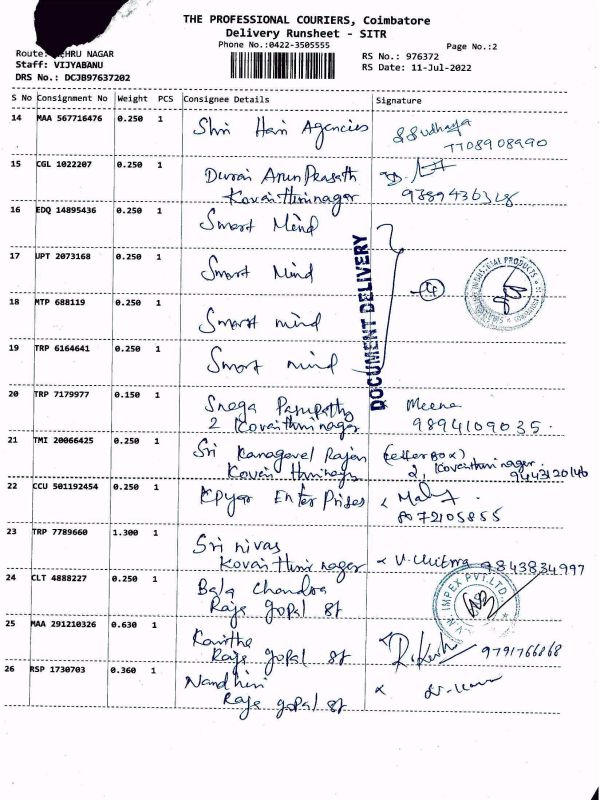 THE PROFESSIONAL COURIERS, Coimbatore
Delivery Runsheet - SITR
Phone No.:0422-3505555
Page No.:2
Route: NEHRU NAGAR
RS No.: 976372
Staff: VIJYABANU
RS Date: 11-Jul-2022
DRS No.: DCJB97637202
S No Consignment No Weight PCS Consignee Details Signature
14 MAA 567716476 0.250 1 Shri Hari Agencies
7708908990
15 CGL 1022207 0.250 1 Durai Arun Prasath
Kovai thiru nagar
16 EDQ 14895436 0.250 1 Smart Mind
17 UPT 2073168 0.250 1 Smart Mind
18 MTP 688119 0.250 1 Smart mind
19 TRP 6164641 0.250 1 Smart mind
DOCUMENT DELIVERY
4
20 TRP 7179977 0.150 1 Snega Meena
2 Kovai thiru nagar 9894109035.
21 TMI 20066425 0.250 1 Sri Kanagavel Rajan (letter box)
Kovai thiru nagar 2, Kovai thiru nagar.
9443120146
22 CCU 501192454 0.250 1 Enter Prises
23 TRP 7789660 1.300 1 Sri nivas
Kovai thiru nagar V. Chitra 9843834997
24 CLT 4888227 0.250 1 Bala Chandra
Raje gopal St
25 MAA 291210326 0.630 1 Kavitha
Raje gopal St 9791766868
26 RSP 1730703 0.360 1 Nandhini
Raje gopal St
IMPEX PVT LTD